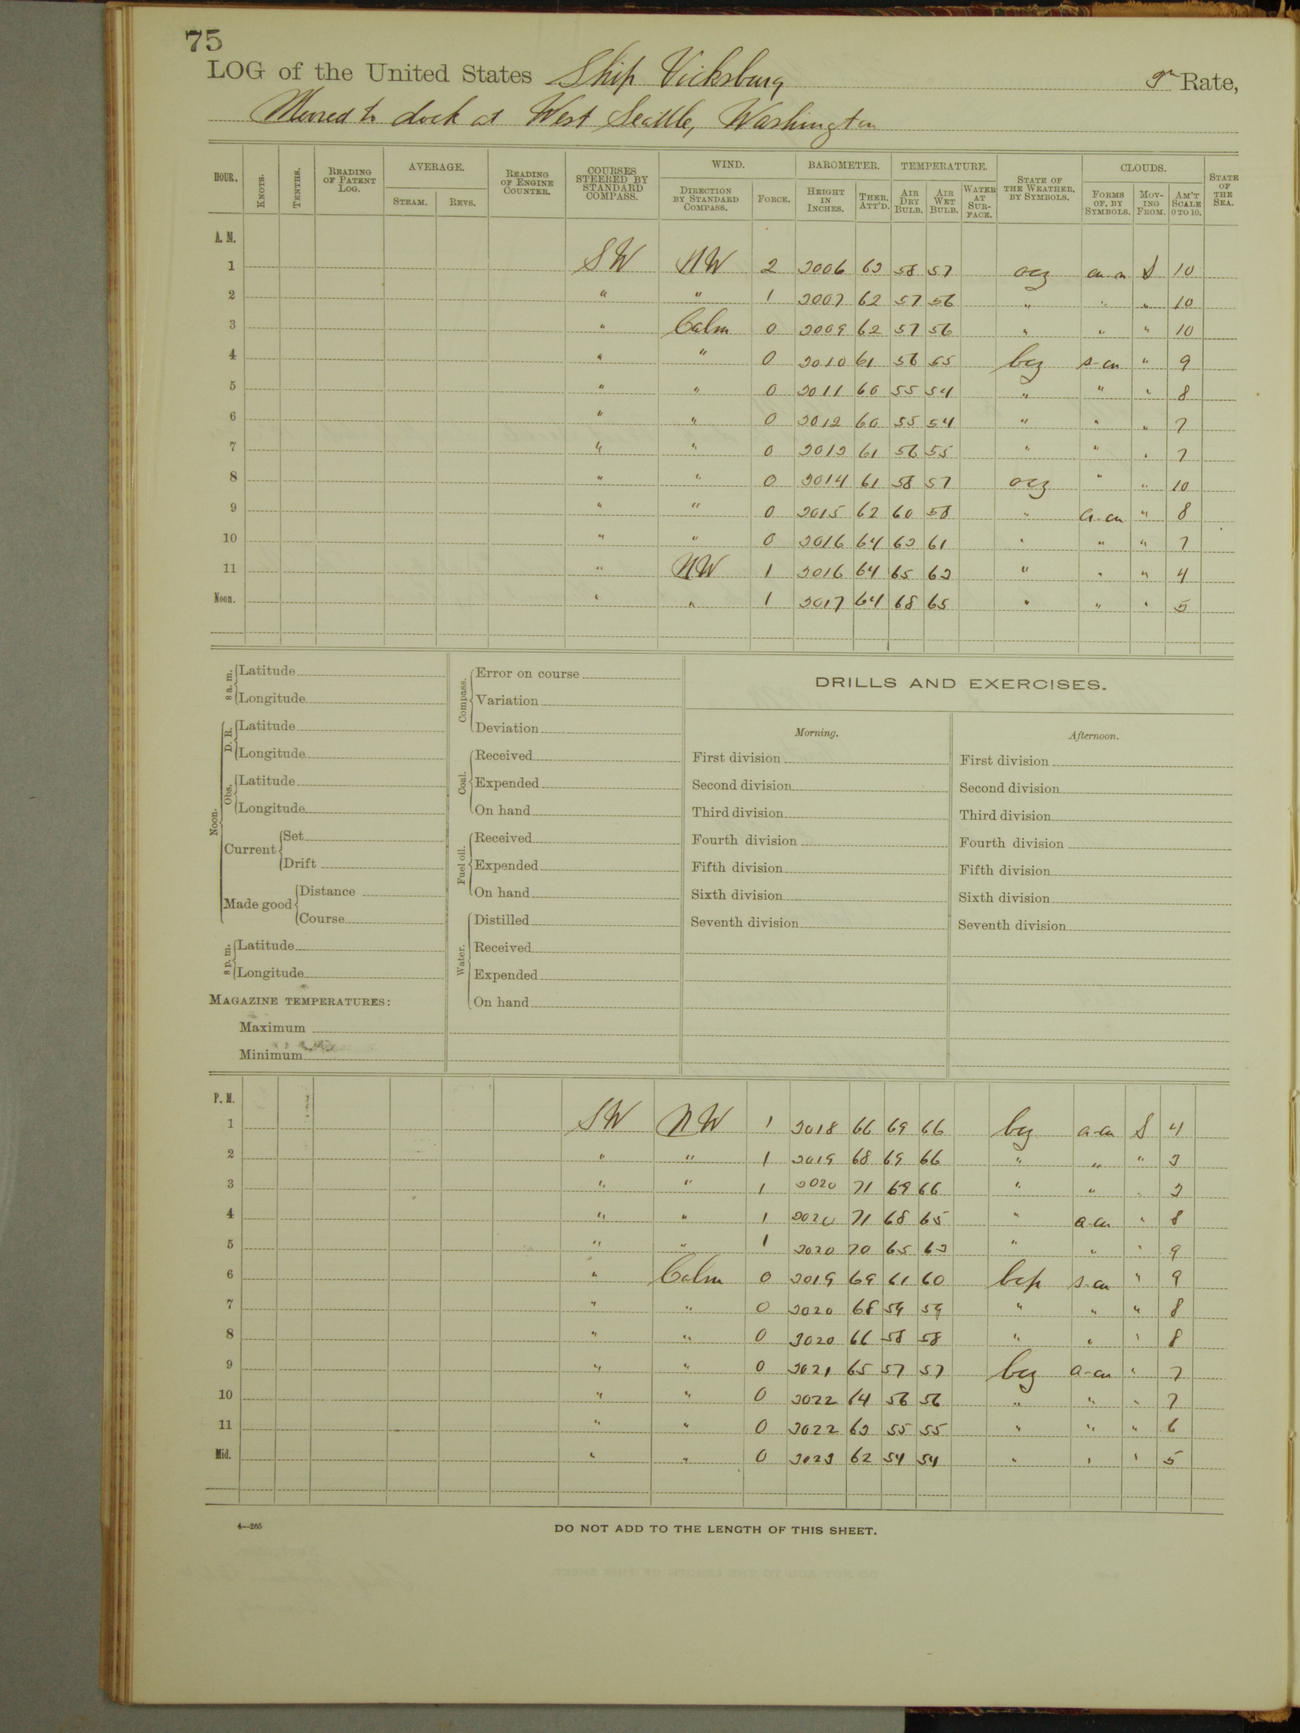 75
LOG of the United States Ship Vicksburg Rate,
Moored to dock at West Seattle, Washington
HOUR. KNOTS. TENTHS. READING OF PATENT LOG. AVERAGE. STEAM. REVS. READING OF ENGINE COUNTER. COURSES STEERED BY STANDARD COMPASS. WIND. DIRECTION BY STANDARD COMPASS. FORCE. BAROMETER. HEIGHT IN INCHES. THER. ATT'D. TEMPERATURE. AIR DRY BULB. AIR WET BULB. WATER AT SURFACE. STATE OF THE WEATHER, BY SYMBOLS. CLOUDS. FORMS OF, BY SYMBOLS. MOVING FROM. AM'T SCALE 0 TO 10. STATE OF THE SEA.
A. M.
1 SW NW 2 3006 63 58 57 ocz S 10
2 " " 1 3007 62 57 56 " " " 10
3 " Calm 0 3009 62 57 56 " " " 10
4 " " 0 3010 61 56 55 bcz s-cu " 9
5 " " 0 3011 60 55 54 " " " 8
6 " " 0 3012 60 55 54 " " " 7
7 " " 0 3013 61 56 55 " " " 7
8 " " 0 3014 61 58 57 ocz " " 10
9 " " 0 3015 62 60 58 " a-cu " 8
10 " " 0 3016 64 63 61 " " " 7
11 " NW 1 3016 64 65 63 " " " 4
Noon. " " 1 3017 64 68 65 " " " 5
8 a.m. Latitude
Longitude
Noon. D. R. Latitude
Longitude
Obs. Latitude
Longitude
Current Set
Drift
Made good Distance
Course
8 p.m. Latitude
Longitude
MAGAZINE TEMPERATURES:
Maximum
Minimum
Compass. Error on course
Variation
Deviation
Coal. Received
Expended
On hand
Fuel oil. Received
Expended
On hand
Water. Distilled
Received
Expended
On hand
DRILLS AND EXERCISES.
Morning.
First division
Second division
Third division
Fourth division
Fifth division
Sixth division
Seventh division
Afternoon.
First division
Second division
Third division
Fourth division
Fifth division
Sixth division
Seventh division
P. M.
1 SW NW 1 3018 66 69 66 bcz a-cu S 4
2 " " 1 3019 68 69 66 " " " 3
3 " " 1 3020 71 69 66 " " " 3
4 " " 1 3020 71 68 65 " a-cu " 8
5 " " 1 3020 70 65 63 " " " 9
6 " Calm 0 3019 69 61 60 bcp s-cu " 9
7 " " 0 3020 68 59 59 " " " 8
8 " " 0 3020 66 58 58 " " " 8
9 " " 0 3021 65 57 57 bcz a-cu " 7
10 " " 0 3022 64 56 56 " " " 7
11 " " 0 3022 63 55 55 " " " 6
Mid. " " 0 3023 62 54 54 " " " 5
4—265
DO NOT ADD TO THE LENGTH OF THIS SHEET.